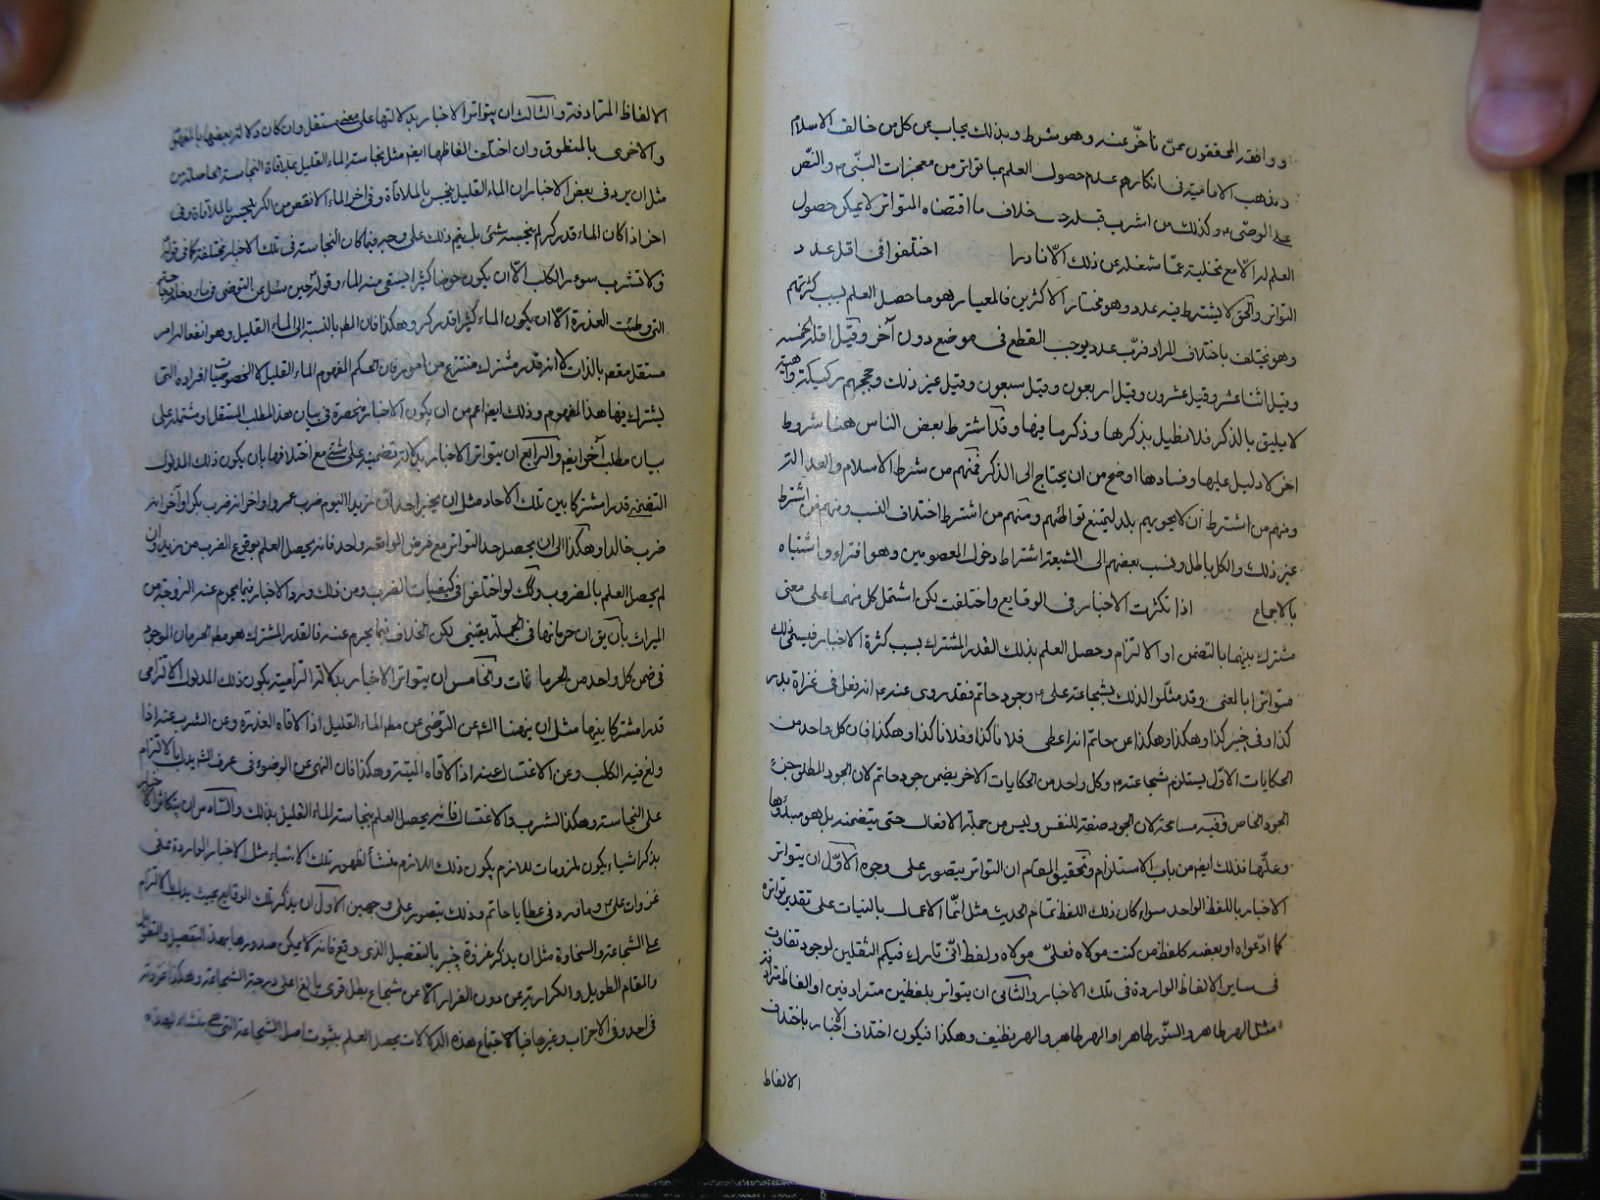 ووافقه المحققون ممن تأخر عنه وهو شرط وبذلك يجاب عن كل من خالف الاسلام
ومذهب الامامية فى انكارهم عدم حصول العلم بما تواتر من معجزات النبى ص والنص
على الوصى ع وكذلك من اشرب قلبه حب خلاف ما اقتضاه المتواتر لا يمكن حصول
العلم له الا مع تخلية عما شغله عن ذلك الا نادرا اختلفوا فى اقل عدد
التواتر والحق لا يشترط فيه عدد وهو مختار الاكثرين فالمعيار هو ما حصل العلم بسبب كثرتهم
وهو يختلف باختلاف الموارد فرب عدد يوجب القطع فى موضع دون آخر وقيل اقله الخمسة
وقيل اثنا عشر وقيل عشرون وقيل اربعون وقيل سبعون وقيل غير ذلك وحججهم ركيكة واهية
لا يليق بالذكر فلا نطيل بذكرها وذكر ما فيها وقد اشترط بعض الناس هنا شروط
اخر لا دليل عليها وفسادها اوضح من ان يحتاج الى الذكر فمنهم من شرط الاسلام والعدالة
ومنهم من اشترط ان لا يحويهم بلد ليمتنع تواطئهم ومنهم من اشترط اختلاف النسب ومنهم من اشترط
غير ذلك والكل باطل ونسب بعضهم الى الشيعة اشتراط دخول المعصومين وهو افتراء واشتباه
بالاجماع اذا تكثرت الاخبار فى الوقايع واختلفت لكن اشتمل كل منهما على معنى
مشترك بينهما بالتضمن او الالتزام وحصل العلم بذلك القدر المشترك بسبب كثرة الاخبار فيسمى ذلك
متواترا بالمعنى وقد مثلوا لذلك بشجاعة على ع وجود حاتم فقد روى عنه ع انه فعل فى غزاة بدر
كذا وفى خيبر كذا وهكذا وهكذا عن حاتم انه اعطى فلانا كذا وفلانا كذا وهكذا فان كل واحد من
الحكايات الاول يستلزم شجاعته ع وكل واحد من الحكايات الاخر يضمن جود حاتم لان الجود المطلق جزء
الجود الخاص وفيه مسامحة لان الجود صفة للنفس وليس من جملة الافعال حتى يتضمنه بل هو مبدؤها
وعلتها فذلك ايضا من باب الاستلزام وتحقيق المقام ان التواتر يتصور على وجوه الاول ان يتواتر
الاخبار باللفظ الواحد سواء كان ذلك اللفظ تمام الحديث مثل انما الاعمال بالنيات على تقدير تواتره
كما ادعوه او بعضه كلفظ من كنت مولاه فعلى مولاه ولفظ انى تارك فيكم الثقلين لوجود تفاوت
فى ساير الالفاظ الواردة فى تلك الاخبار والثانى ان يتواتر بلفظين مترادفين او الفاظ مترادفة
مثل الهر طاهر والسنور طاهر او الهر طاهر والهر نظيف وهكذا فيكون اختلاف الاخبار باختلاف
الالفاظ
الالفاظ المترادفة والثالث ان يتواتر الاخبار بدلالتها على معنى مستقل وان كان دلالة بعضها بالمفهوم
والاخرى بالمنطوق وان اختلف الفاظها ايضا مثل نجاسة الماء القليل بملاقاة النجاسة الحاصلة من
مثل ان يرد فى بعض الاخبار ان الماء القليل ينجس بالملاقاة وفى اخر الماء الانقص من الكر ينجس بالملاقاة وفى
اخر اذا كان الماء قدر كر لم ينجسه شئ بل يضم ذلك على وجه فيما كان النجاسة فى تلك الاخبار مختلفة كما فى قوله
ولا تشرب سؤر الكلب الا ان يكون حوضا كثيرا يستقى منه الماء وقوله حين سئل عن التوضى من ماء دخلته
التى وطئت العذرة الا ان يكون الماء كثيرا قدر كر وهكذا فان الحكم بالنسبة الى الماء القليل وهو انفعاله امر
مستقل مقصود بالذات لا انه قدر مشترك منتزع من امور فان الحكم المفهوم الماء القليل لا الخصوصيات افراده التى
يشترك فيها هذا المفهوم وذلك ايضا اعم من ان يكون الاخبار منحصرة فى بيان هذا المطلب المستقل او مشتملة على
بيان مطلب آخر ايضا والرابع ان يتواتر الاخبار بدلالة تضمنية على شئ مع اختلافها بان يكون ذلك المدلول
التضمنى قدرا مشتركا بين تلك الآحاد مثل ان يخبر احد ان زيدا اليوم ضرب عمروا واخر انه ضرب بكرا وآخر انه
ضرب خالدا وهكذا الى ان يحصل حد التواتر مع فرض الواقعة واحد فانه يحصل العلم بوقوع الضرب من زيد وان
لم يحصل العلم بالمضروب وكذلك لو اختلفوا فى كيفيات الضرب ومن ذلك ورد الاخبار فيما يحرم عنه الزوجة من
الميراث بان يق ان حرمانها فى الجملة يقينى لكن الخلاف فيما يحرم عنه فالقدر المشترك هو مطلق الحرمان الموجود
فى ضمن كل واحد من الحرمانات والخامس ان يتواتر الاخبار بدلالة التزامية يكون ذلك المدلول الالتزامى
قدرا مشتركا بينها مثل ان ينهانا الشارع عن التوضى عن مطلق الماء القليل اذا لاقاه العذرة وعن الشرب عنه اذا
ولغ فيه الكلب وعن الاغتسال عنه اذا لاقاه الميتة وهكذا فان النهى عن الوضوء فى عرف الشرع يدل بالالتزام
على النجاسة وهكذا الشرب والاغتسال فانه يحصل العلم بنجاسة الماء القليل بذلك والسادس ان يتكاثر الاخبار
بذكر اشياء يكون ملزومات للازم يكون ذلك اللازم منشأ لظهور تلك الاشياء مثل الاخبار الواردة فى
غزوات على ع وما ورد فى عطايا حاتم وذلك يتصور على وجهين الاول ان يذكر تلك الوقايع بحيث يدل بالالتزام
على الشجاعة والسخاوة مثل ان يذكر غزوة خيبر بالتفصيل الذى وقع فانه لا يمكن صدورها بهذا التفصيل والتطويل
والمقام الطويل والكرارية من دون الفرار الا عن شجاع بطل قوى بالغ اعلى درجة الشجاعة وهكذا غزوة
فى احد وفى الاحزاب وغيرها فبالاجتماع هذه الدلالات يحصل العلم بثبوت اصل الشجاعة التى هى منشاء لهذه